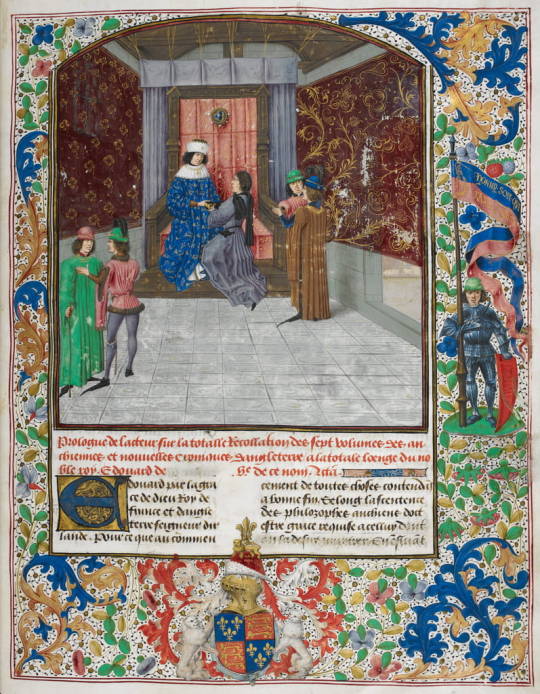 Prologue de lacteur sur la totalle Recollation des sept volumes des an
chiennes et nouvelles Croniques dangleterre a la totale loenge du no
ble roy Edouard de de ce nom
Edouard par la gra
ce de dieu Roy de
france et dangle
terre seigneur dir
lande. Pour ce que au commen
cement de toutes choses
a bonne fin. Selong la sentence
des philosophes anchiens doit
estre grace requise a celluy dont